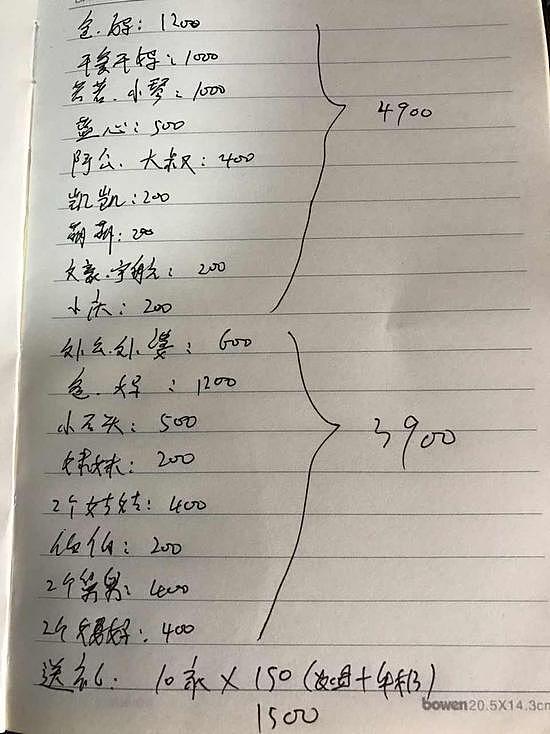 爸.妈: 1200
干爹干妈: 1000
芸芸.小琴: 1000
蓝心: 500
阿公.大叔: 400
凯凯: 200
萌萌: 200
文豪.宇航: 200
小庆: 200
4900
外公.外婆: 600
爸.妈: 1200
小石头: 500
妹妹: 200
2个姑姑: 400
伯伯: 200
2个舅舅: 400
2个舅妈: 400
3900
送礼: 10家 X 150 (烟+牛奶)
1500
bowen 20.5X14.3cm